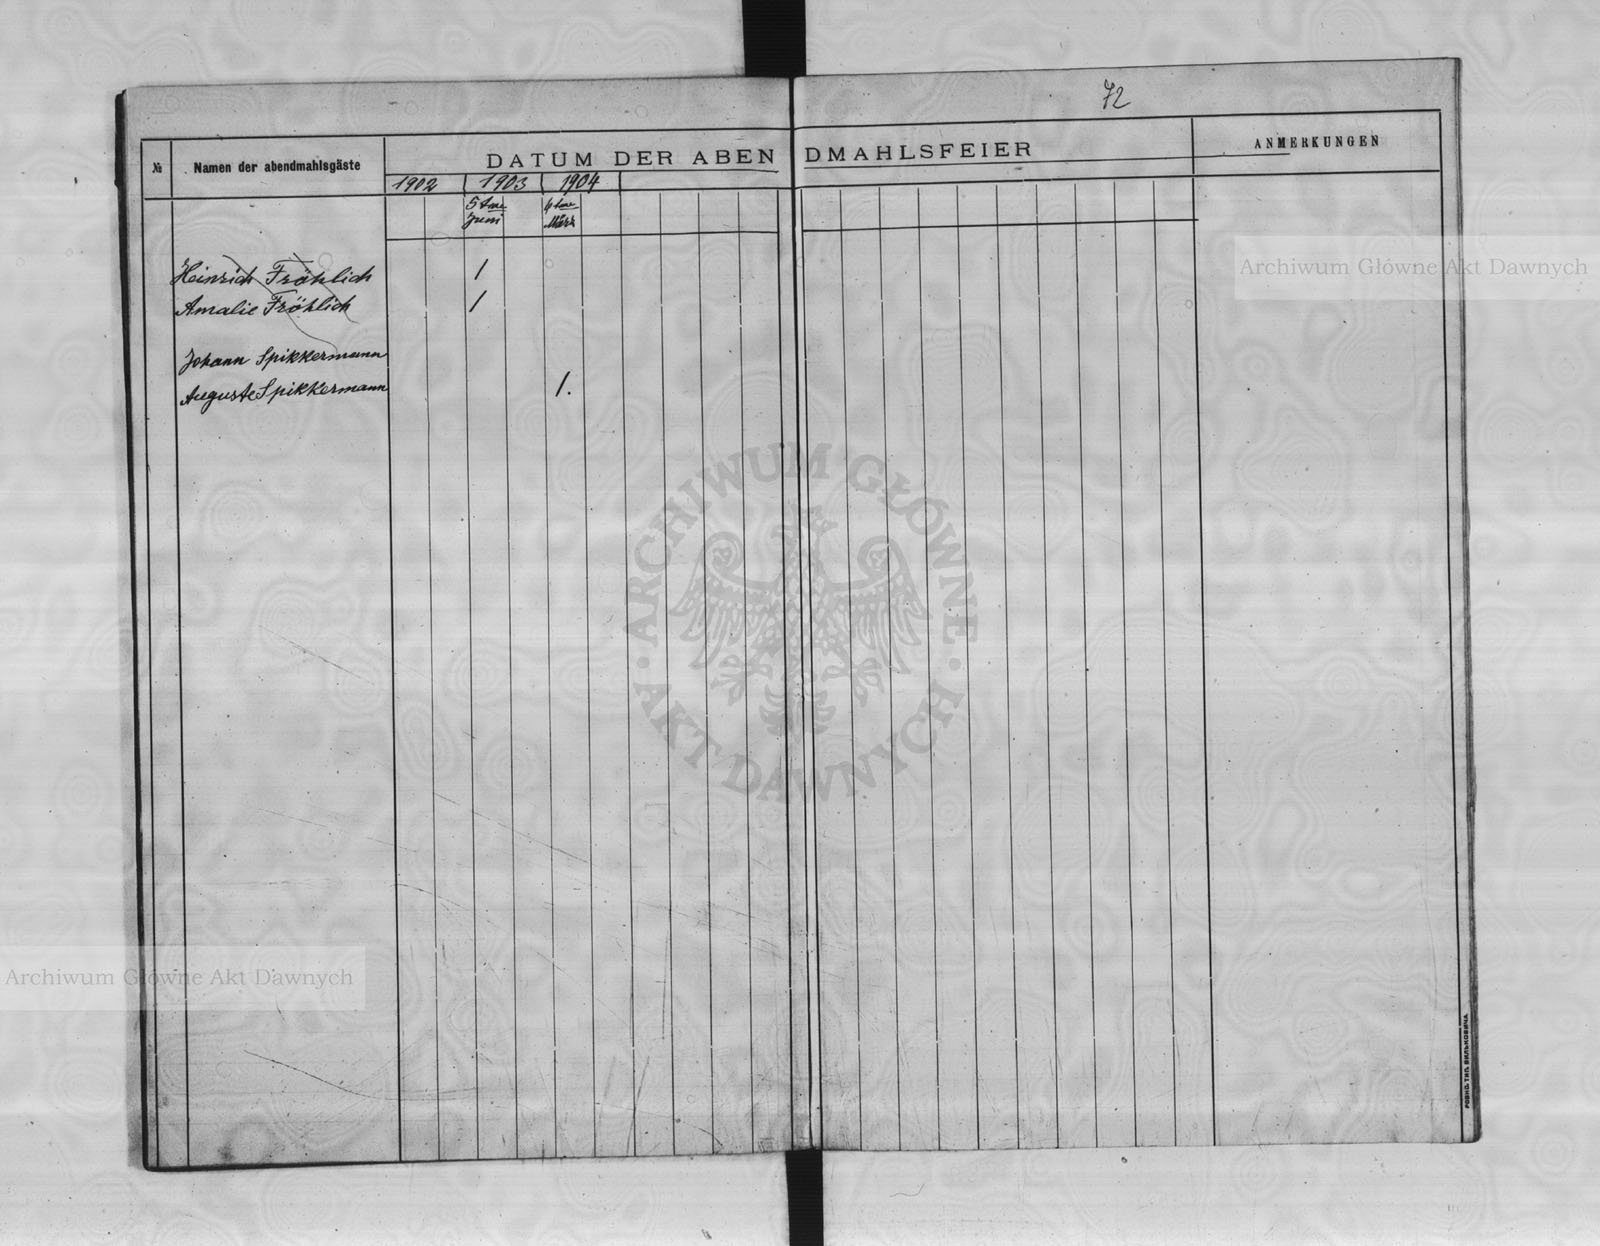 72
№ Namen der abendmahlsgäste DATUM DER ABENDMAHLSFEIER ANMERKUNGEN
1902 1903 1904
5 ten 6 ten
Juni März
Heinrich Fröhlich 1
Amalie Fröhlich 1
Johann Spikkermann
Auguste Spikkermann 1.
Archiwum Główne Akt Dawnych
ARCHIWUM GŁÓWNE · AKT DAWNYCH ·
Archiwum Główne Akt Dawnych
РОВНО. ТИП. ВИЛЬКОВИЧА.